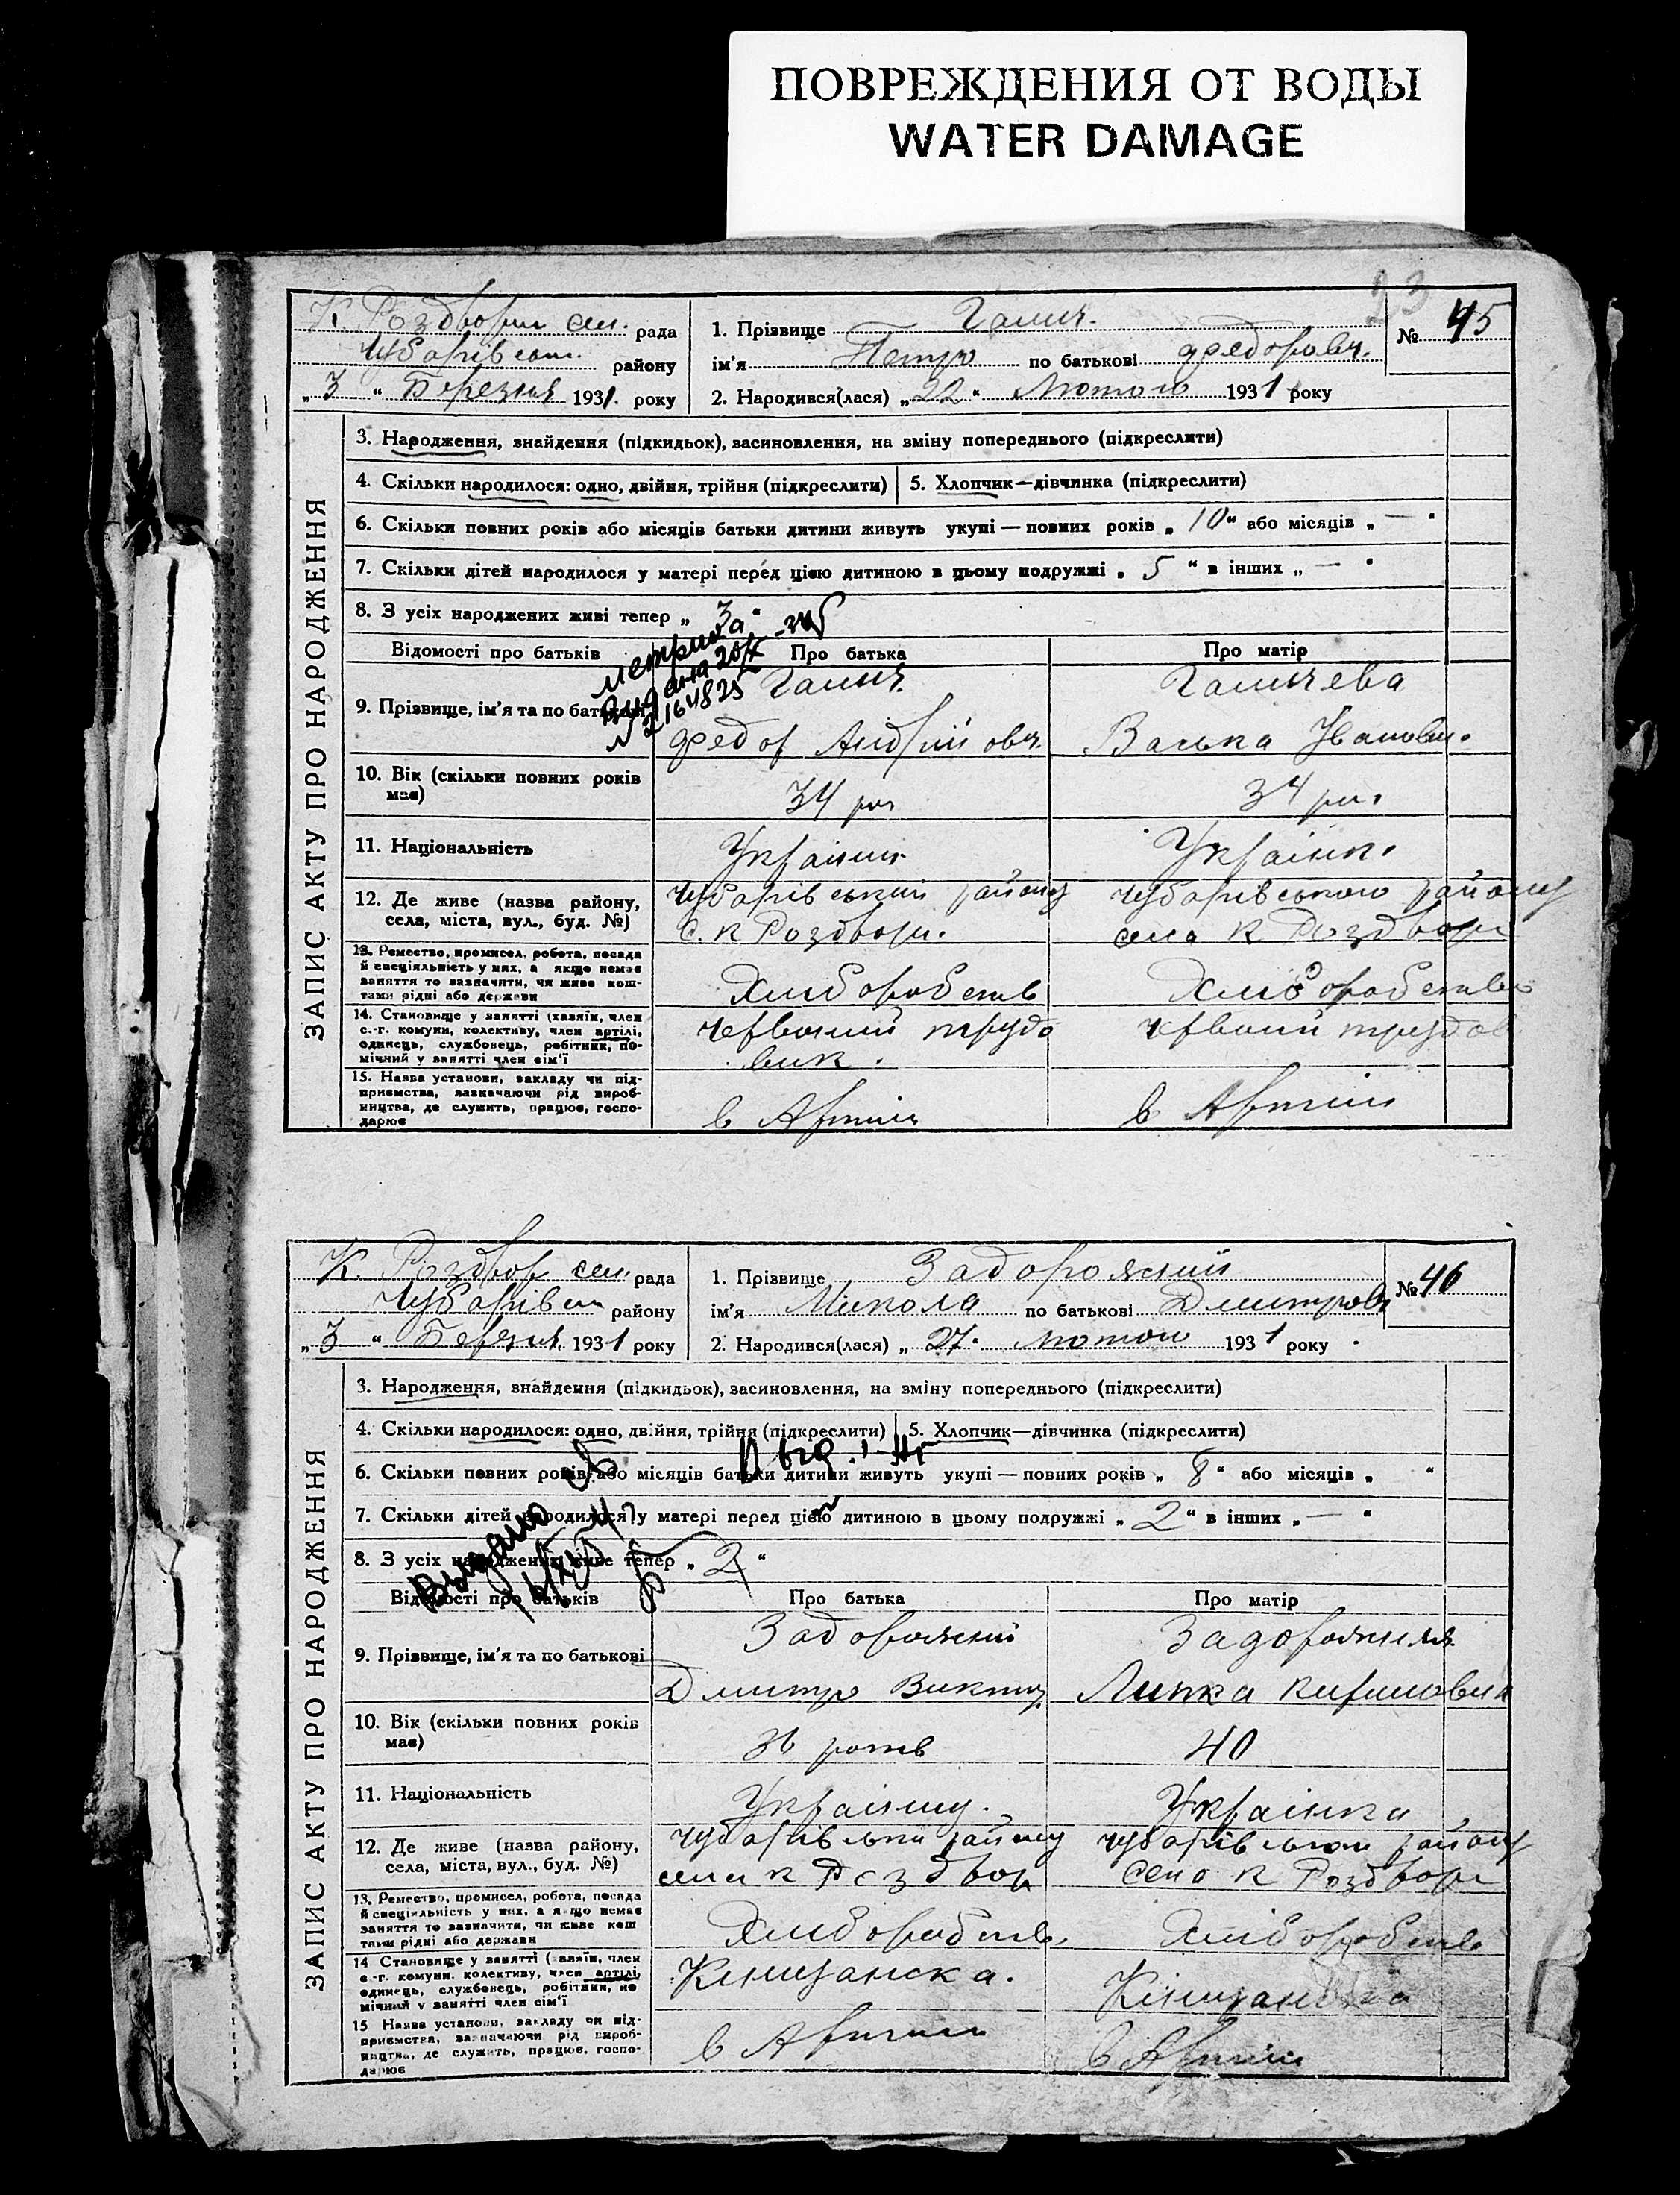 ПОВРЕЖДЕНИЯ ОТ ВОДЫ
WATER DAMAGE
23
К. Роздори сел. рада
Чубарівськ. району
„3“ Березня 1931. року
1. Прізвище Галич.
ім'я Петро по батькові Федорович.
2. Народився(лася) „22“ Лютого 1931 року
№ 45
ЗАПИС АКТУ ПРО НАРОДЖЕННЯ
3. Народження, знайдення (підкидьок), васиновлення, на зміну попереднього (підкреслити)
4. Скільки народилося: одно, двійня, трійня (підкреслити)
5. Хлопчик—дівчинка (підкреслити)
6. Скільки повних років або місяців батьки дитини живуть укупі — повних років „10“ або місяців „—“
7. Скільки дітей народилося у матері перед цією дитиною в цьому подружжі „5“ в інших „—“
8. З усіх народжених живі тепер „3“
метрика
Відомості про батьків
Про батька
Про матір
9. Прізвище, ім'я та по батькові
Галич.
Федор Андрійович
Галичева
Васька Іванівн.
10. Вік (скільки повних років має)
34 рок
34 рок.
11. Національність
Українець
Українк.
12. Де живе (назва району, села, міста, вул., буд. №)
Чубарівський району
с. К Роздори.
Чубарівського району
село К Роздори
13. Ремество, промисел, робота, посада й спеціяльність у них, а якщо немає заняття то зазначити, чи живе коштами рідні або держави
Хліборобств
Хліборобство
14. Становище у занятті (хазяїн, член с.-г. комуни, колективу, член артілі, одинець, службовець, робітник, помічний у занятті член сім'ї
Червоний трудовик.
Червоний трудов
15. Назва установи, закладу чи підприємства, зазначаючи рід виробництва, де служить, працює, господарює
в Артілі
в Артілі
К. Роздор сел. рада
Чубарівськ району
„3“ Березня 1931 року
1. Прізвище Задорожний
ім'я Микола по батькові Дмитров
2. Народився(лася) „27“ лютого 1931 року
№ 46
ЗАПИС АКТУ ПРО НАРОДЖЕННЯ
3. Народження, знайдення (підкидьок), васиновлення, на зміну попереднього (підкреслити)
4. Скільки народилося: одно, двійня, трійня (підкреслити)
5. Хлопчик—дівчинка (підкреслити)
6. Скільки повних років або місяців батьки дитини живуть укупі — повних років „8“ або місяців „ “
7. Скільки дітей народилося у матері перед цією дитиною в цьому подружжі „2“ в інших „—“
8. З усіх народжених живе тепер „2“
Выдано
Відомості про батьків
Про батька
Про матір
9. Прізвище, ім'я та по батькові
Задорожний
Дмитро Виктор.
Задорожня
Липка Кириловна
10. Вік (скільки повних років має)
36 років
40
11. Національність
Українец.
Українка
12. Де живе (назва району, села, міста, вул., буд. №)
Чубарівськи району
села К Роздор
Чубарівськи району
село К Роздори
13. Ремество, промисел, робота, посада й спеціяльність у них, а якщо немає заняття то зазначити, чи живе коштами рідні або держави
Хліборобств.
Хліборобств
14 Становище у занятті (хазяїн, член с.-г. комуни, колективу, член артілі, одинець, службовець, робітник, помічний у занятті член сім'ї
15 Назва установи, закладу чи підприємства, зазначаючи рід виробництва, де служить, працює, господарює
в Артілі
в Артілі